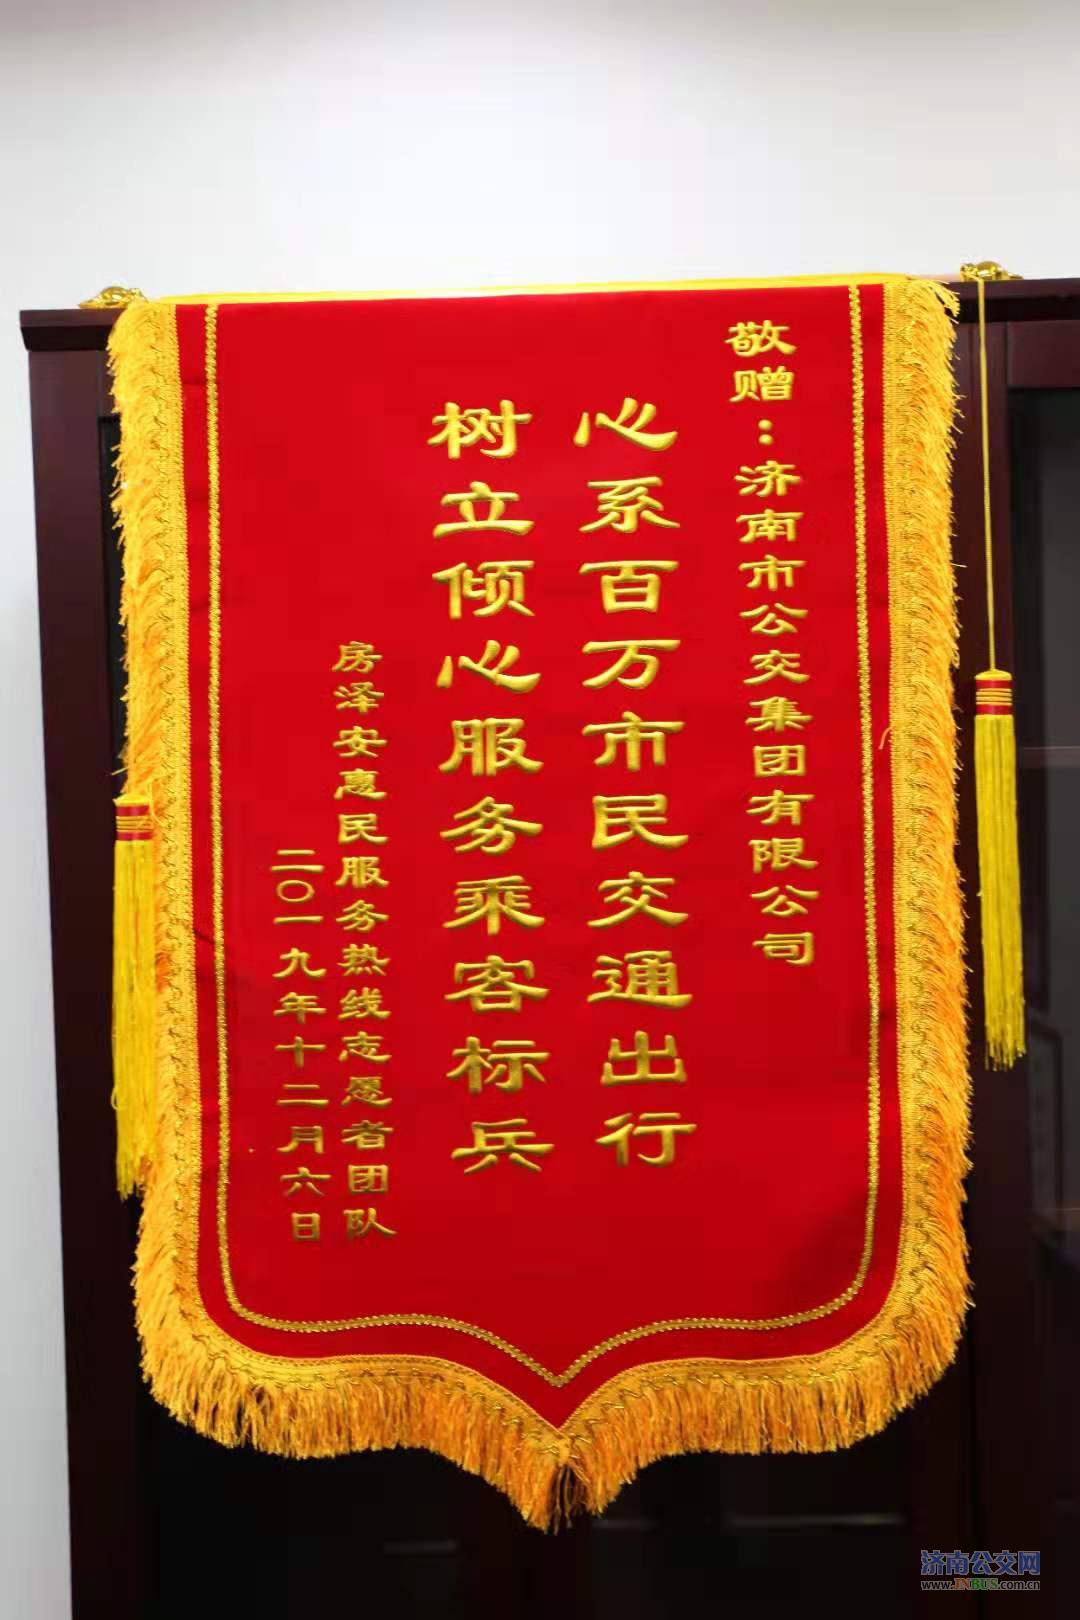 敬赠：济南市公交集团有限公司
心系百万市民交通出行
树立倾心服务乘客标兵
房泽安惠民服务热线志愿者团队
二〇一九年十二月六日
济南公交网
www.JNBUS.com.cn